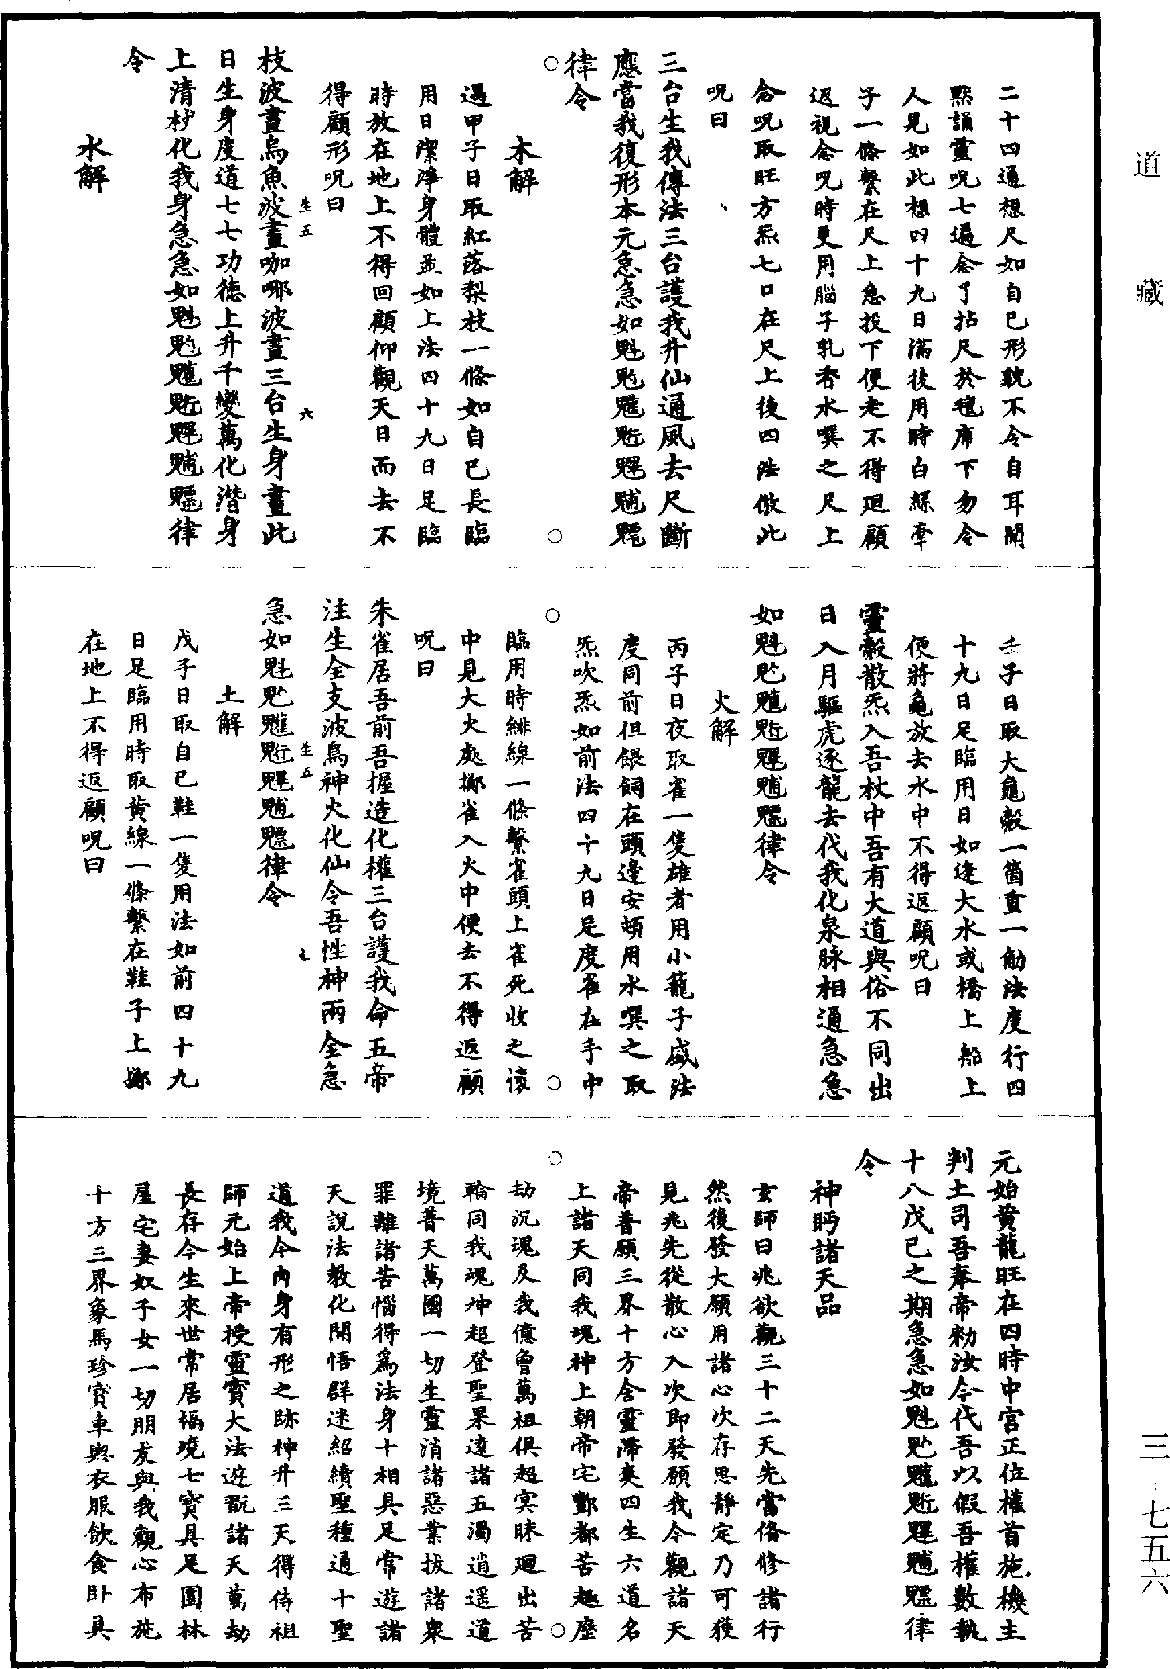 道藏
二十四通想尺如自己形貌不令自耳聞
黙誦靈呪七遍念了拈尺於氊席下勿令
人見如此想四十九日滿後用時白綵牽
子一條繫在尺上急投下便走不得迴顧
返視念呪時更用腦子乳香水噀之尺上
念呪取旺方炁七口在尺上後四法倣此
呪曰
三台生我傳法三台護我升仙通風去尺斷
應當我復形本元急急如魁𩲃䰢魓魒律令
木解
遇甲子日取紅落梨枝一條如自己長臨
用日潔淨身體並如上法四十九日足臨
時放在地上不得回顧仰觀天日而去不
得顧形呪曰
生五 六
枝波畫烏魚波畫咖哪波畫三台生身畫此
日生身度道七七功德上升千變萬化潛身
上清杪化我身急急如魁律
令
水解
壬子日取大龜殼一箇重一觔法度行四
十九日足臨用日如逢大水或橋上船上
便將龜放去水中不得返顧呪曰
靈殼散炁入吾杖中吾有大道與俗不同出
日入月驅虎逐龍去代我化泉脉相通急急
如魁律令
火解
丙子日夜取雀一隻雄者用小籠子盛法
度同前但餵飼在頭邊安頓用水噀之取
炁吹炁如前法四十九日足度雀在手中
臨用時緋線一條繫雀頭上雀死收之懷
中見大火處擲雀入火中便去不得返顧
呪曰
朱雀居吾前吾握造化權三台護我命五帝
注生全支波烏神火化仙令吾性神兩全急
生五 七
急如魁律令
土解
戊子日取自己鞋一隻用法如前四十九
日足臨用時取黄線一條繫在鞋子上擲
在地上不得返顧呪曰
元始黄龍旺在四時中宮正位權首施機主
判土司吾奉帝勑汝今代吾以假吾權數執
十八戊己之期急急如魁律
令
神眄諸天品
玄師曰兆欲觀三十二天先當俻修諸行
然後發大願用諸心次存思靜定乃可獲
見兆先從散心入次即發願我今觀諸天
帝普願三界十方含靈滯爽四生六道名
上諸天同我魂神上朝帝宅酆都苦趣歷
劫沉魂及我億曾萬祖俱超冥昧廻出苦
輪同我魂神超登聖果遠諸五濁逍遥道
境普天萬國一切生靈消諸惡業拔諸衆
罪離諸苦惱得爲法身十相具足常遊諸
天說法教化開悟群迷紹續聖種通十聖
道我今内身有形之跡神升三天得侍祖
師元始上帝授靈寶大法遊翫諸天萬劫
長存今生來世常居福境七寶具足園林
屋宅妻奴子女一切朋友與我觀心布施
十方三界象馬珍寶車輿衣服飲食卧具
三 七五六